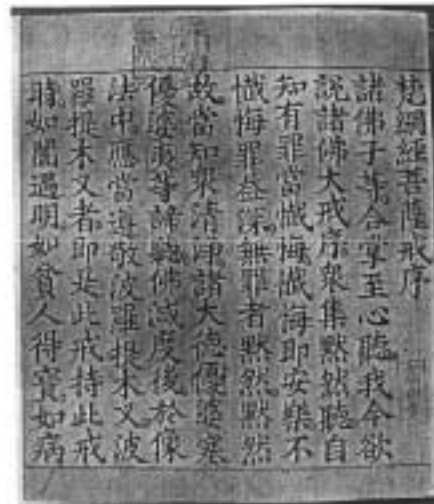 梵網經菩薩戒序
諸佛子等合掌至心聽我今欲
說諸佛大戒序衆集默然聽自
知有罪當懺悔懺悔即安樂不
懺悔罪益深無罪者默然默然
故當知衆清淨諸大德優婆塞
優婆夷等諦聽佛滅度後於像
法中應當遵敬波羅提木叉波
羅提木叉者即是此戒持此戒
時如闇遇明如貧人得寶如病